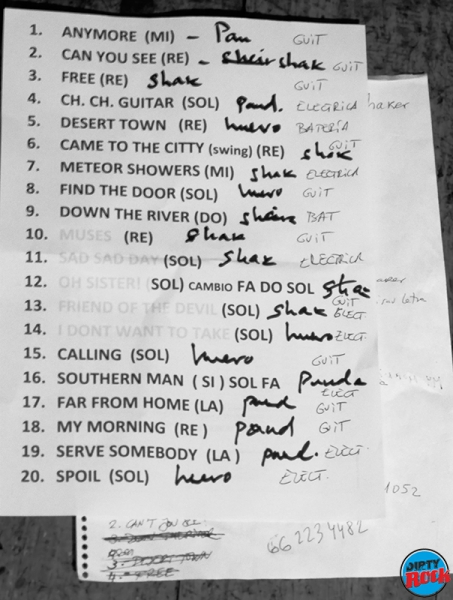 1. ANYMORE (MI) - Pau GUIT
2. CAN YOU SEE (RE) - shak GUIT
3. FREE (RE) shak GUIT
4. CH. CH. GUITAR (SOL) paud. ELECTRICA haker
5. DESERT TOWN (RE) huevo BATERÍA
6. CAME TO THE CITTY (swing) (RE) shak GUIT
7. METEOR SHOWERS (MI) shak ELECTRICA
8. FIND THE DOOR (SOL) huevo GUIT
9. DOWN THE RIVER (DO) BAT
10. MUSES (RE) shak GUIT
11. SAD SAD DAY (SOL) shak ELECTRICA
12. OH SISTER! (SOL) CAMBIO FA DO SOL GUIT
13. FRIEND OF THE DEVIL (SOL) shak ELECT
14. I DONT WANT TO TAKE (SOL) huevo ELECT
15. CALLING (SOL) huevo GUIT
16. SOUTHERN MAN (SI) SOL FA ELECT
17. FAR FROM HOME (LA) paud GUIT
18. MY MORNING (RE) paud GUIT
19. SERVE SOMEBODY (LA) paud. ELECT.
20. SPOIL (SOL) huevo ELECT.
1052
2. CAN'T YOU SEE
3. DESERT TOWN
4. FREE
662234482
DIRTY ROCK